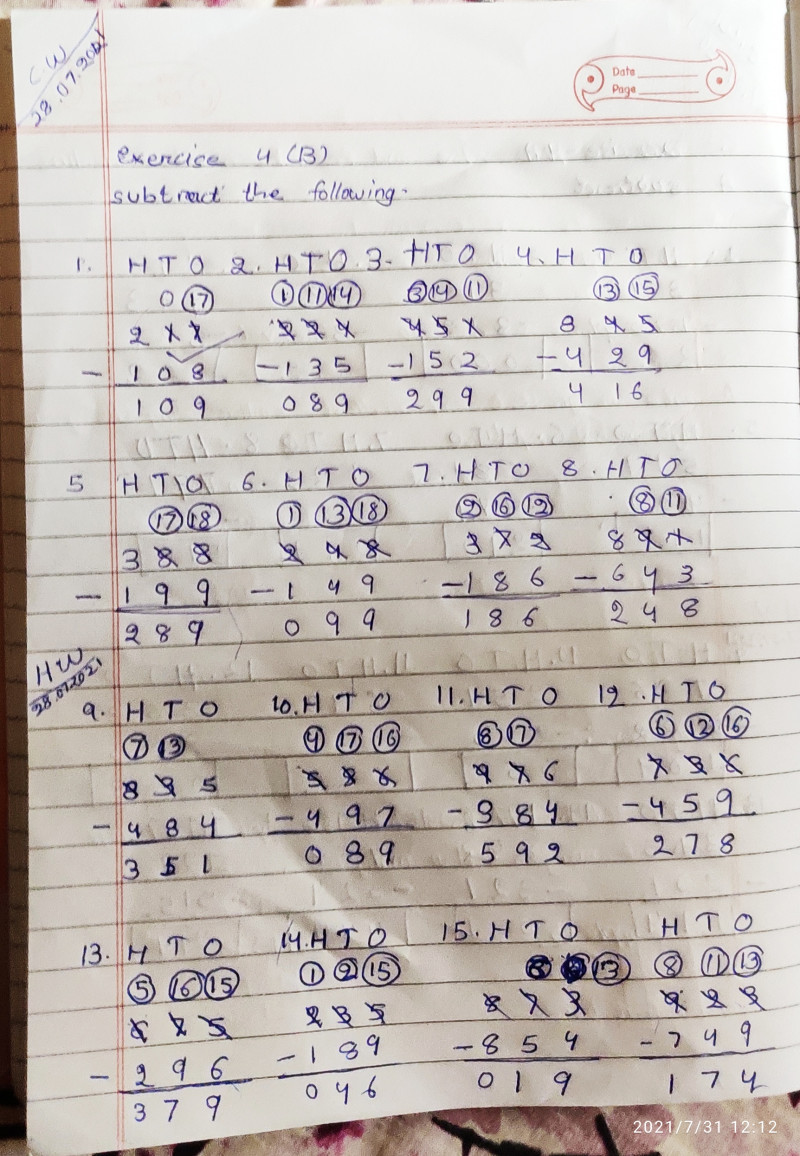 C.W
28.07.2021
Date
Page
exercise 4 (B)
subtract the following.
1. H T O 2. H T O 3. H T O 4. H T O
0 17 1 11 14 3 14 11 13 15
2 1 7 2 2 4 4 5 1 8 4 5
- 108 - 135 - 152 - 429
109 089 299 416
5 H T O 6. H T O 7. H T O 8. H T O
17 18 1 13 18 2 16 12 8 11
3 8 8 2 4 8 3 7 2 8 9 1
- 199 - 149 - 186 - 643
289 099 186 248
HW
28.07.2021
9. H T O 10. H T O 11. H T O 12. H T O
7 13 4 17 16 8 17 6 12 16
8 3 5 5 8 6 9 7 6 7 3 6
- 484 - 497 - 384 - 459
351 089 592 278
13. H T O 14. H T O 15. H T O H T O
5 16 15 1 2 15 13 8 11 13
6 7 5 2 3 5 8 7 3 9 2 3
- 296 - 189 - 854 - 749
379 046 019 174
2021/7/31 12:12